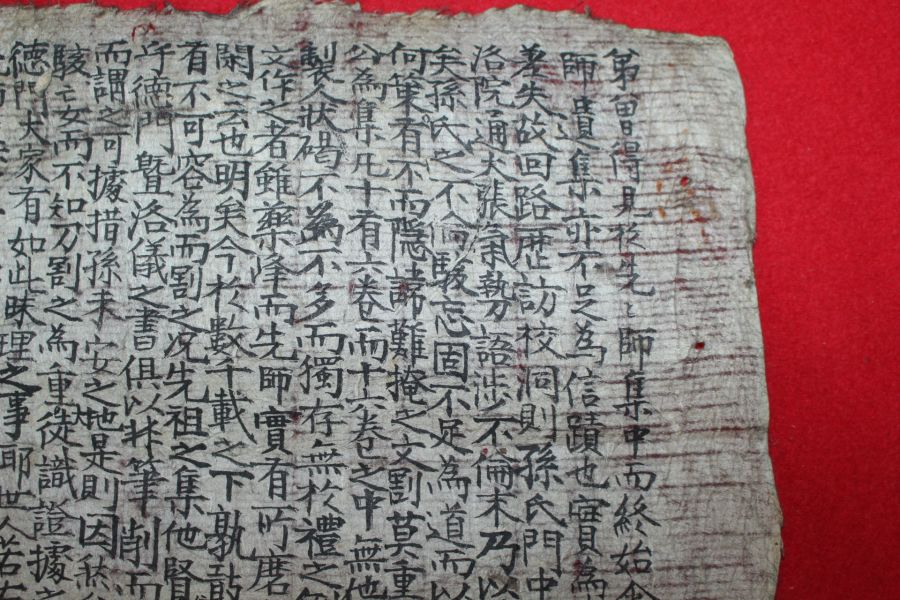 弟曾得見於先先師集中而終始
師遺集亦不足為信蹟也實為
差失故回路歷訪校洞則孫氏門中
洛院通大張氣勢語涉不倫末乃以
矣孫氏之不倫駁忘固不足為道而以
何策有不而隱諱難掩之文割莫重
公為集凡十有六卷而十六卷之中無他
製狀碣不為不多而獨存無於禮之
文作之者雖藥峰而先師實有所
閑之云也明矣今於數千載之下孰敢
有不可容為而割之况先祖之集他賢
乎德門暨洛儀之書俱以筆削而
而謂之可據措孫未安之地是則因
駁云云而不知刀割之為重徒識證據之
德門大家有如此昧理之事耶世人若